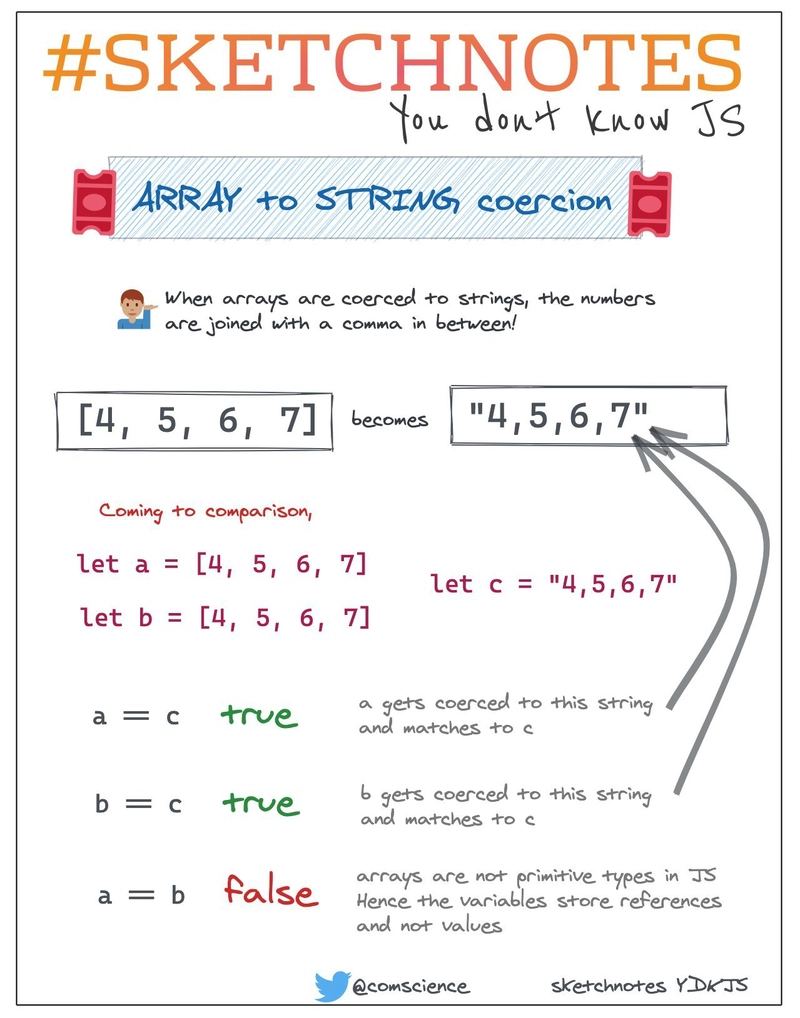 #SKETCHNOTES
You don't know JS
ARRAY to STRING coercion
When arrays are coerced to strings, the numbers
are joined with a comma in between!
[4, 5, 6, 7] becomes "4,5,6,7"
Coming to comparison,
let a = [4, 5, 6, 7]
let c = "4,5,6,7"
let b = [4, 5, 6, 7]
a == c true
a gets coerced to this string
and matches to c
b == c true
b gets coerced to this string
and matches to c
a == b false
arrays are not primitive types in JS
Hence the variables store references
and not values
@comscience
sketchnotes YDKJS